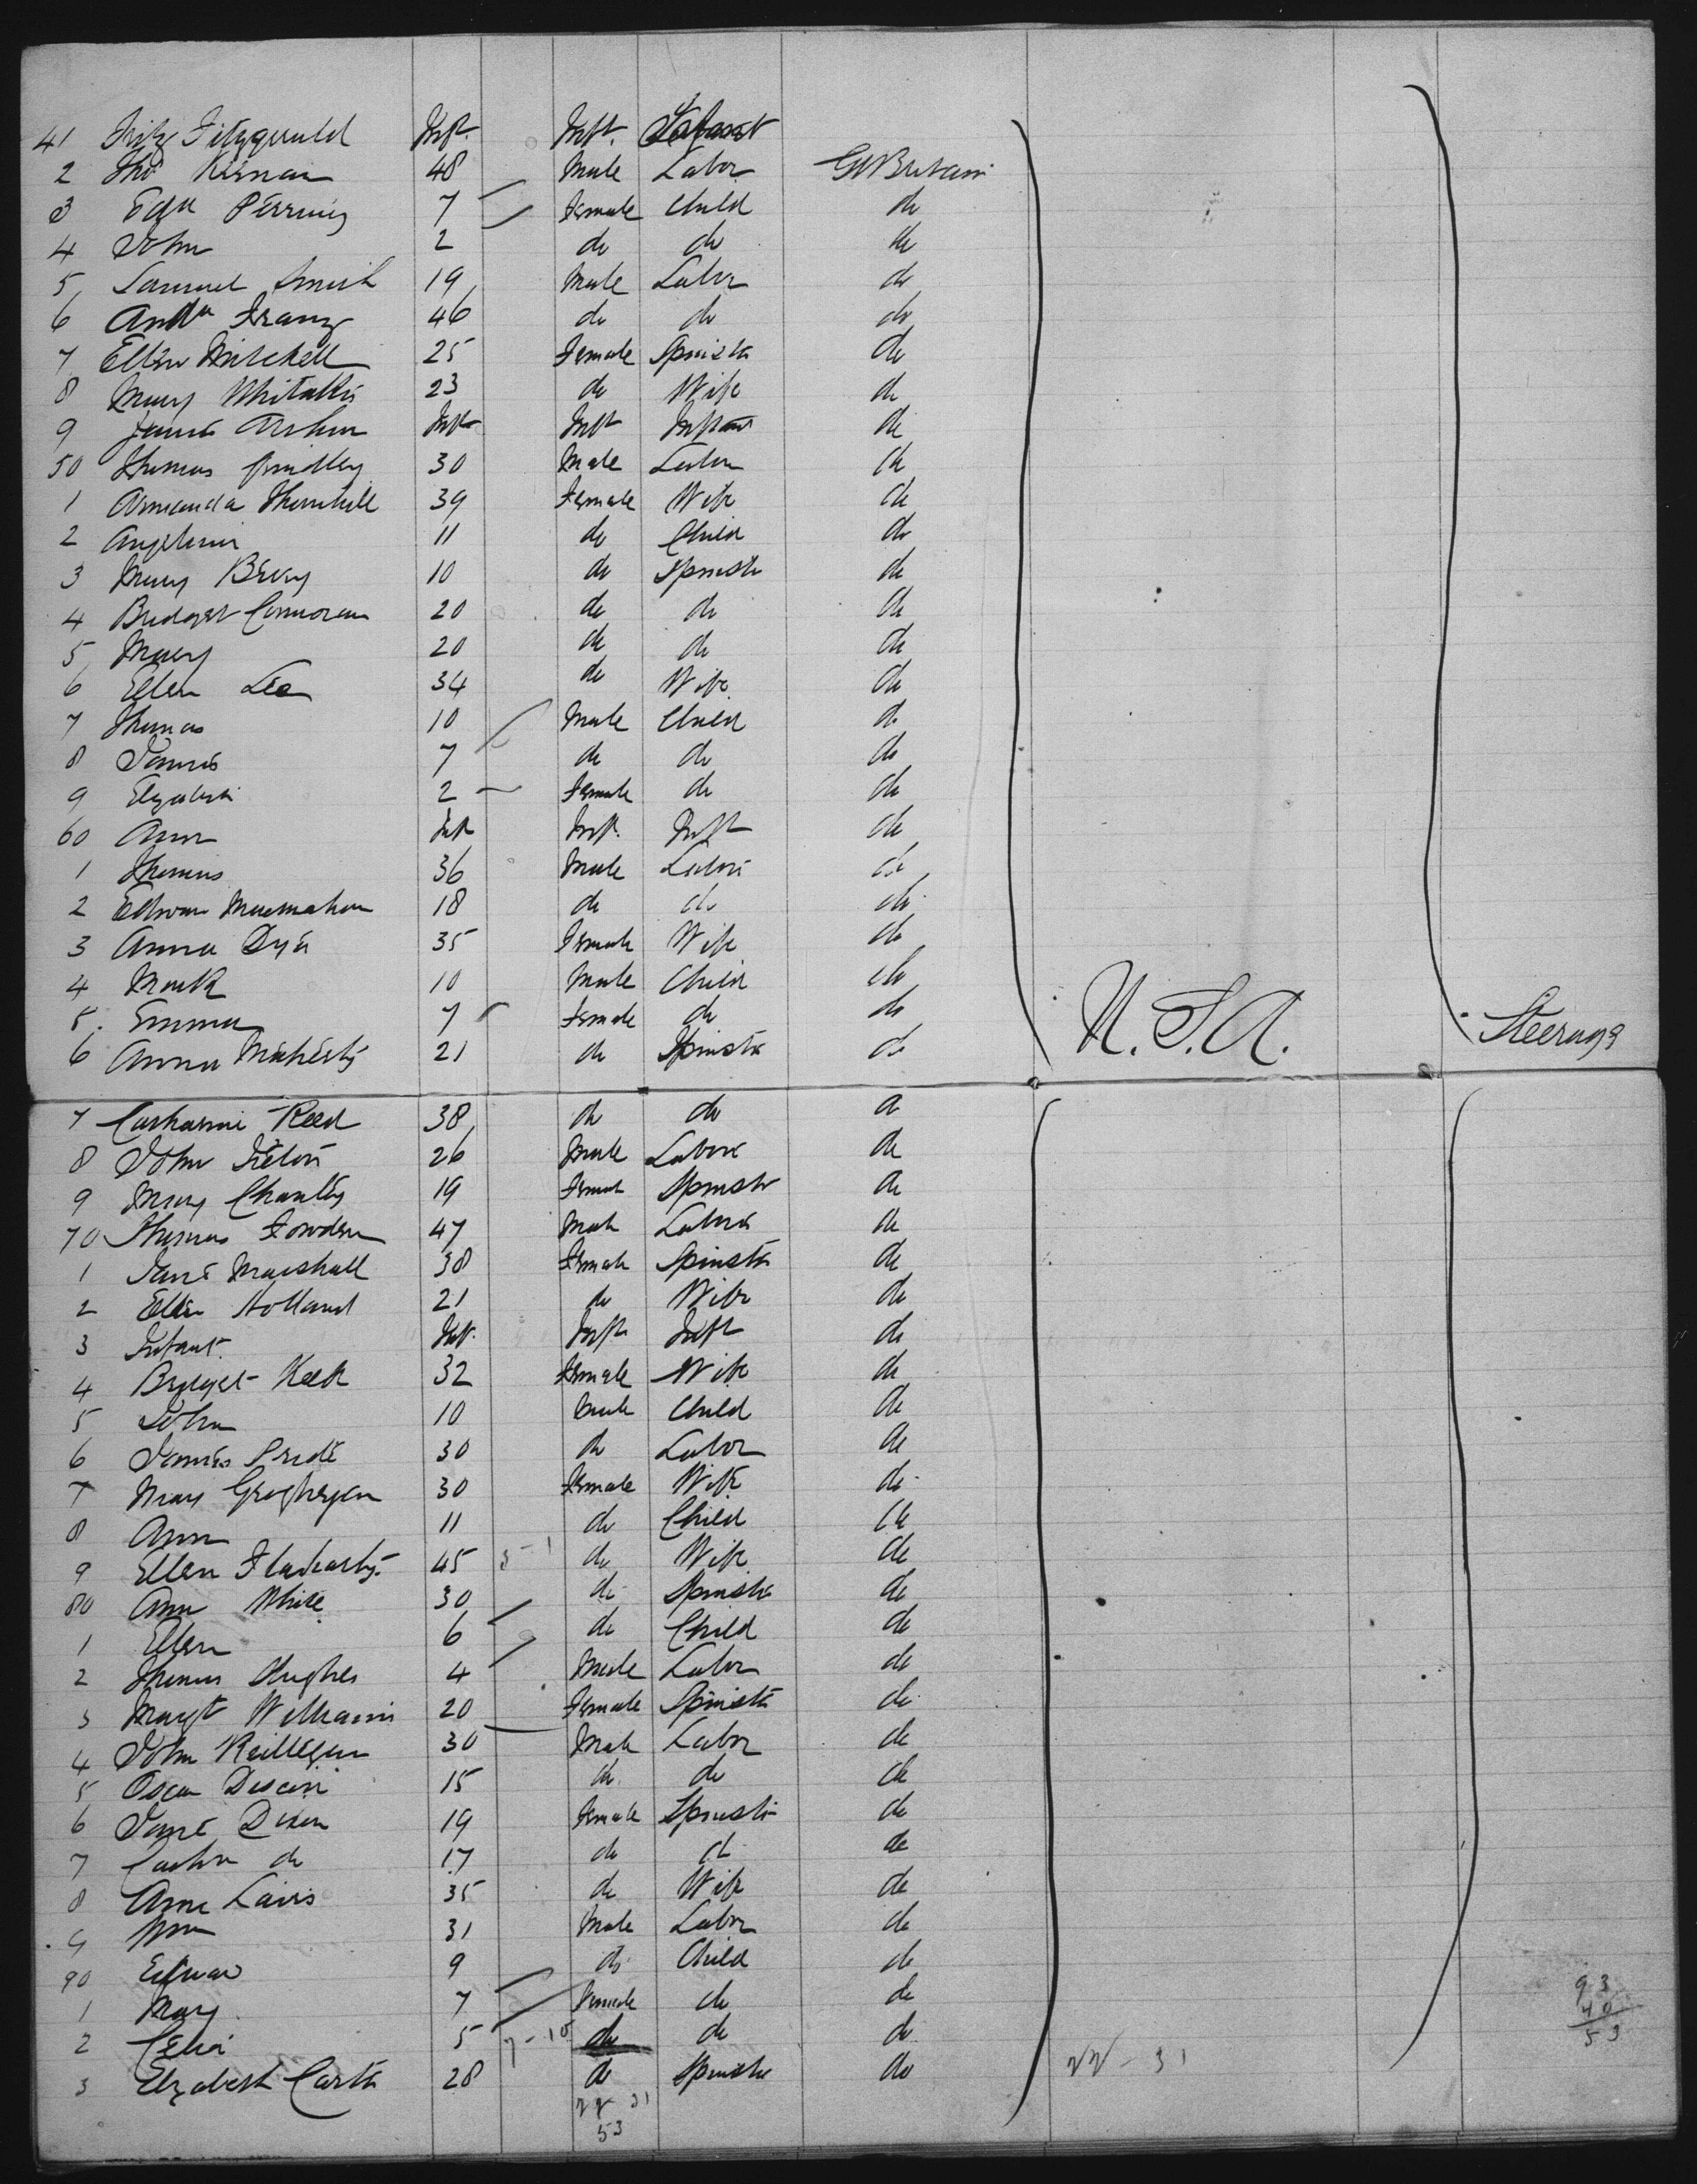 41 Fitzgerald Inft Inft.
2 Tho Kiernan 48 Male Labor Gt Britain
3 Perring 7 Female Child do
4 John 2 do do do
5 Samuel Smith 19 Male Labor do
6 Franz 46 do do do
7 Ellen Mitchell 25 Female Spinster do
8 Mary Whitaker 23 do Wife do
9 James Arthur Inft Inft Infant do
50 Thomas Grindley 30 Male Labor do
1 Armanda Thornhill 39 Female Wife do
2 11 do Child do
3 Mary 10 do Spinster do
4 Bridget Connoran 20 do do do
5 Mary 20 do do do
6 Ellen Lee 34 do Wife do
7 Thomas 10 Male Child do
8 James 7 do do do
9 Elizabeth 2 Female do do
60 Ann Inft Inft. Inft do
1 Thomas 36 Male Labor do
2 Edwar Macmahon 18 do do do
3 Anna Dyer 35 Female Wife do
4 Mark 10 Male Child do
5. Emma 7 Female do do
6 Anna 21 do Spinster do
U.S.A. Steerage
7 Catharine Reed 38 do do do
8 John 26 Male Laborer do
9 Mary Chantley 19 Female Spinster do
70 Thomas Fowden 47 Male Laborer do
1 Jane Marshall 38 Female Spinster do
2 Ellen Holland 21 do Wife do
3 Infant. Inft. Inft Inft do
4 Bridget 32 Female Wife do
5 John 10 Male Child do
6 James Pride 30 do Labor do
7 Mary Geoghegan 30 Female Wife do
8 Ann 11 do Child do
9 Ellen Flaharty 45 do Wife do
80 Ann White 30 do Spinster do
1 Ellen 6 do Child do
2 Thomas Hughes 4 Male Labor do
3 Margt Williams 20 Female Spinster do
4 John 30 Male Labor do
5 Oscar 15 do do do
6 Jane Dixon 19 Female Spinster do
7 do 17 do do do
8 Anne 35 do Wife do
9 Wm 31 Male Labor do
90 Edwar 9 do Child do
1 Mary 7 Female do do
2 Celia 5 7-15 do do do
3 Elizabeth Carter 28 do Spinster do
22 - 31
22 31
53
93
40
53